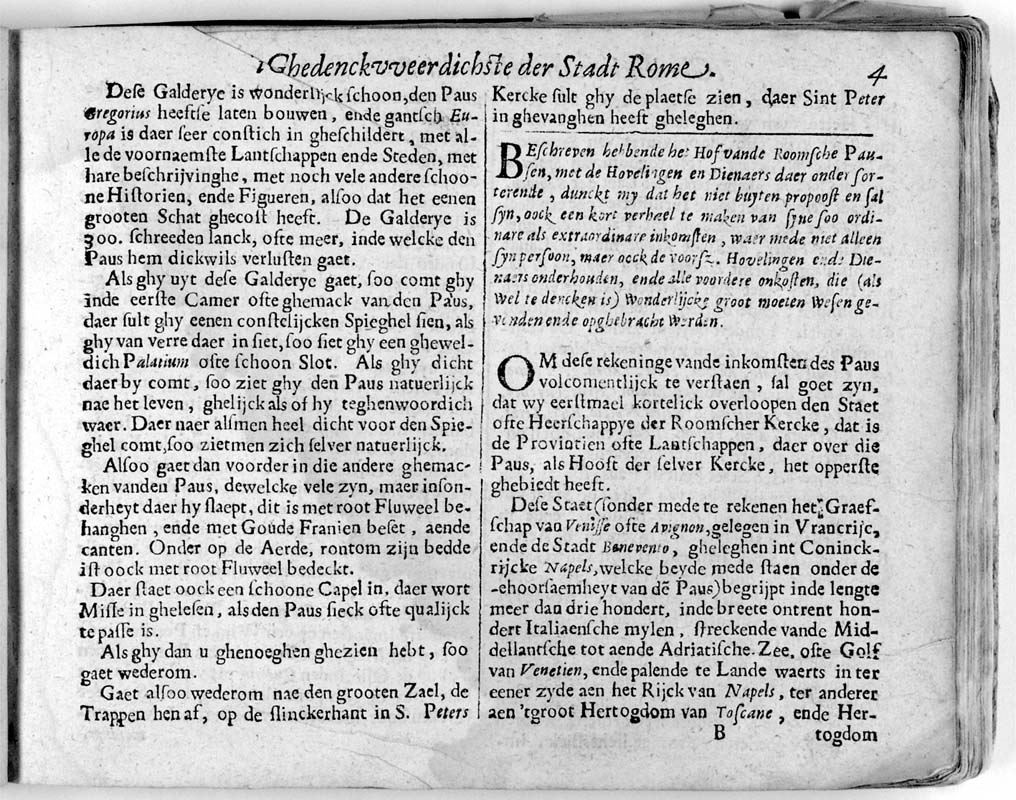 Ghedenckvveerdichste der Stadt Rome.
4
Dese Galderye is wonderlijck schoon, den Paus
Gregorius heeftse laten bouwen, ende gantsch Eu-
ropa is daer seer constich in gheschildert, met al-
le de voornaemste Lantschappen ende Steden, met
hare beschrijvinghe, met noch vele andere schoo-
ne Historien, ende Figueren, alsoo dat het eenen
grooten Schat ghecost heeft. De Galderye is
300. schreeden lanck, ofte meer, inde welcke den
Paus hem dickwils verlusten gaet.
Als ghy uyt dese Galderye gaet, soo comt ghy
inde eerste Camer ofte ghemack van den Paus,
daer sult ghy eenen constelijcken Spieghel sien, als
ghy van verre daer in siet, soo siet ghy een ghewel-
dich Palatium ofte schoon Slot. Als ghy dicht
daer by comt, soo ziet ghy den Paus natuerlijck
nae het leven, ghelijck als of hy teghenwoordich
waer. Daer naer alsmen heel dicht voor den Spie-
ghel comt, soo zietmen zich selver natuerlijck.
Alsoo gaet dan voorder in die andere ghemac-
ken vanden Paus, dewelcke vele zyn, maer inson-
derheyt daer hy slaept, dit is met root Fluweel be-
hanghen, ende met Goude Franien beset, aende
canten. Onder op de Aerde, rontom zijn bedde
ist oock met root Fluweel bedeckt.
Daer staet oock een schoone Capel in, daer wort
Misse in ghelesen, als den Paus sieck ofte qualijck
te passe is.
Als ghy dan u ghenoeghen ghezien hebt, soo
gaet wederom.
Gaet alsoo wederom nae den grooten Zael, de
Trappen hen af, op de slinckerhant in S. Peters
Kercke sult ghy de plaetse zien, daer Sint Peter
in ghevanghen heeft gheleghen.
BEschreven hebbende het Hof vande Roomsche Pau-
sen, met de Hovelingen en Dienaers daer onder sor-
terende, dunckt my dat het niet buyten propoost en sal
syn, oock een kort verhael te maken van syne soo ordi-
nare als extraordinare inkomsten, waer mede niet alleen
syn persoon, maer oock de voorsz. Hovelingen ende Die-
naers onderhouden, ende alle voordere onkosten, die (als
wel te dencken is) wonderlijcke groot moeten wesen ge-
vonden ende opghebracht werden.
OM dese rekeninge vande inkomsten des Paus
volcomentlijck te verstaen, sal goet zyn,
dat wy eerstmael kortelick overloopen den Staet
ofte Heerschappye der Roomscher Kercke, dat is
de Provintien ofte Lantschappen, daer over die
Paus, als Hooft der selver Kercke, het opperste
ghebiedt heeft.
Dese Staet (sonder mede te rekenen het Graef-
schap van Venisse ofte Avignon, gelegen in Vrancrijc,
ende de Stadt Benevento, gheleghen int Coninck-
rijcke Napels, welcke beyde mede staen onder de
-ehoorsaemheyt van dẽ Paus) begrijpt inde lengte
meer dan drie hondert, inde breete ontrent hon-
dert Italiaensche mylen, streckende vande Mid-
dellantsche tot aende Adriatische Zee, ofte Golf
van Venetien, ende palende te Lande waerts in ter
eener zyde aen het Rijck van Napels, ter anderer
aen 'tgroot Hertogdom van Toscane, ende Her-
B
togdom